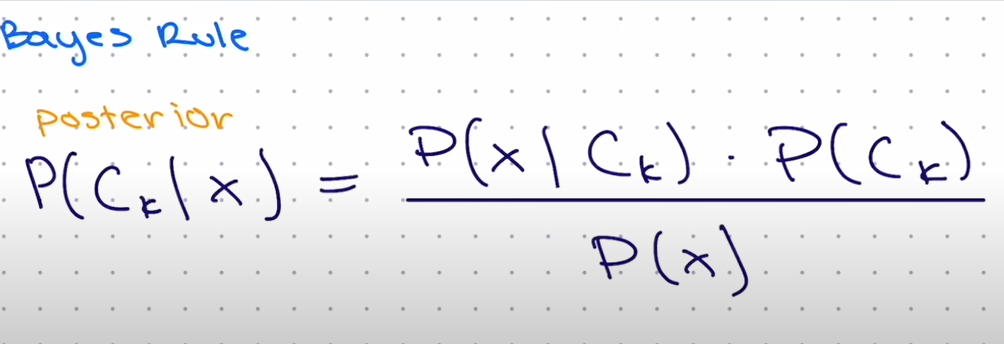 Bayes Rule
posterior
P(Cₖ|x) = P(x|Cₖ) · P(Cₖ)
P(x)